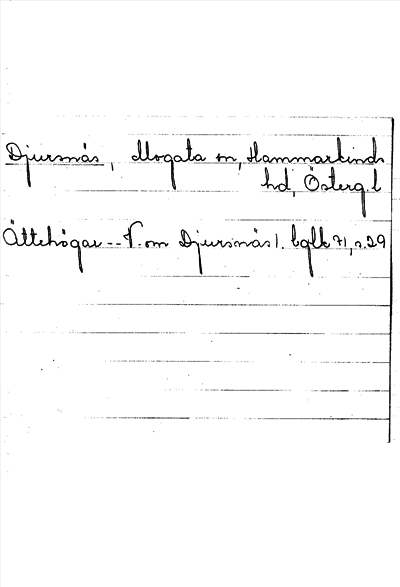 Djursnäs, Mogata sn, Hammarkinds
hd, Österg. l
Ättehögar -- V. om Djursnäs l. bglb 71, s. 29